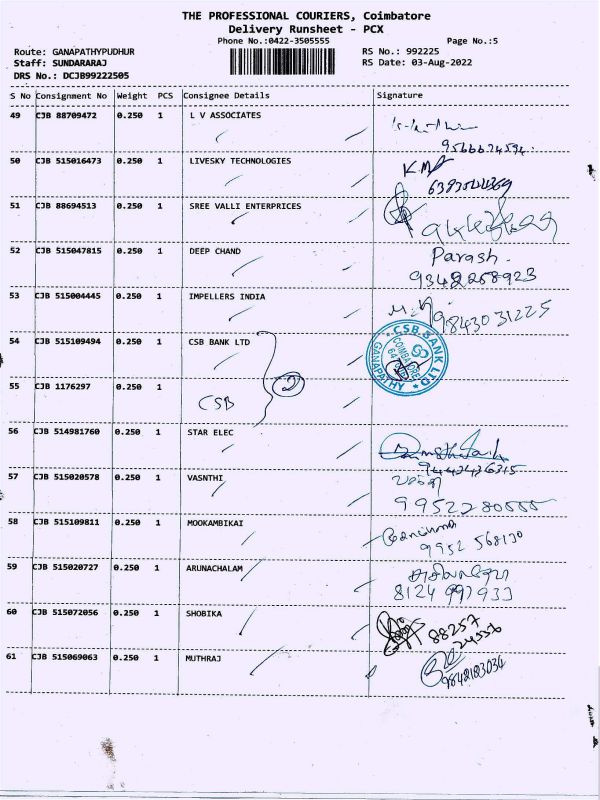 THE PROFESSIONAL COURIERS, Coimbatore
Delivery Runsheet - PCX
Phone No.:0422-3505555 Page No.:5
Route: GANAPATHYPUDHUR RS No.: 992225
Staff: SUNDARARAJ RS Date: 03-Aug-2022
DRS No.: DCJB99222505
S No Consignment No Weight PCS Consignee Details Signature
49 CJB 88709472 0.250 1 L V ASSOCIATES
50 CJB 515016473 0.250 1 LIVESKY TECHNOLOGIES
51 CJB 88694513 0.250 1 SREE VALLI ENTERPRICES
52 CJB 515047815 0.250 1 DEEP CHAND Parash
9342258923
53 CJB 515004445 0.250 1 IMPELLERS INDIA 9843031225
54 CJB 515109494 0.250 1 CSB BANK LTD 2
CSB BANK LTD
COIMBATORE
GANAPATHY
55 CJB 1176297 0.250 1 CSB
56 CJB 514981760 0.250 1 STAR ELEC
9442436315
57 CJB 515020578 0.250 1 VASNTHI
58 CJB 515109811 0.250 1 MOOKAMBIKAI
9952 568130
59 CJB 515020727 0.250 1 ARUNACHALAM
8124 997933
60 CJB 515072056 0.250 1 SHOBIKA 88257
24556
61 CJB 515069063 0.250 1 MUTHRAJ